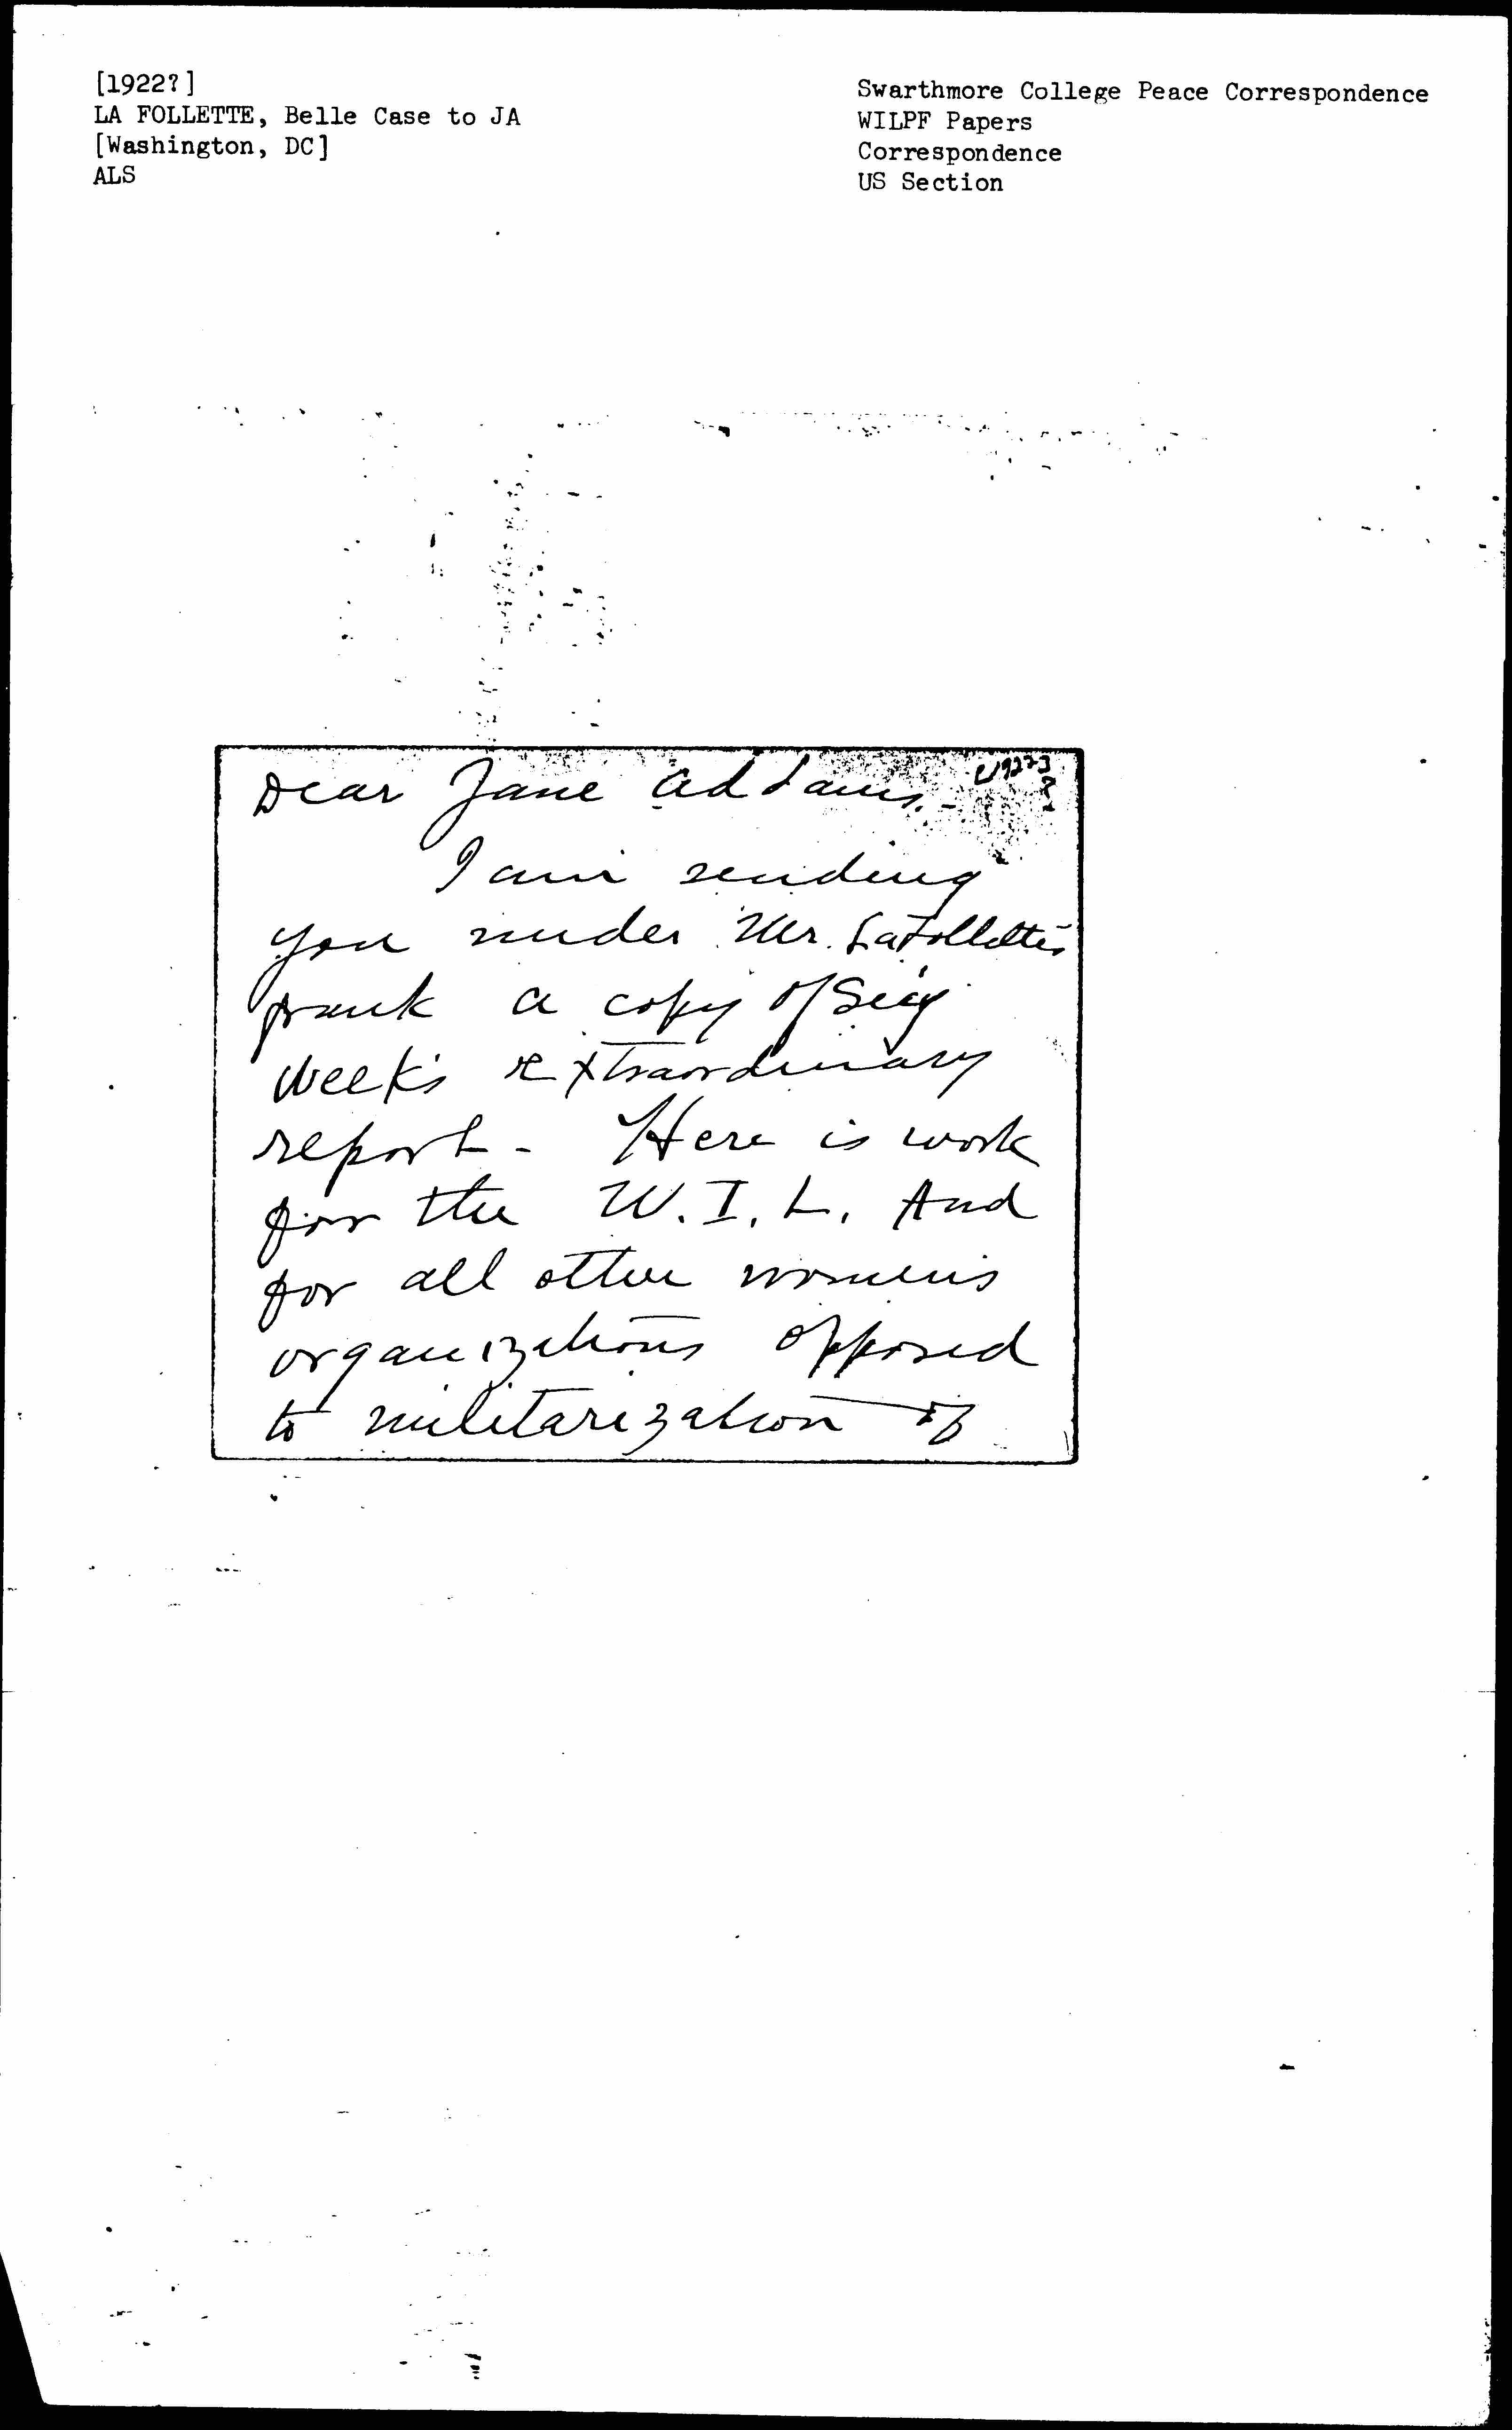 [1922?]
LA FOLLETTE, Belle Case to JA
[Washington, DC]
ALS
Swarthmore College Peace Correspondence
WILPF Papers
Correspondence
US Section
Dear Jane Addams.-
I am sending
you under Mr. LaFollette's
frank a copy of Secy
Weeks extraordinary
report - Here is work
for the W. I. L. And
for all other women's
organizations opposed
to militarization of